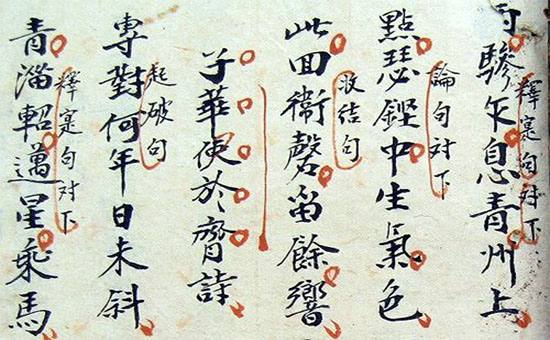 釋寔句对下
驂乍息青州上
論句对下
點瑟鏗中生氣色
收結句
此回衛磬留餘響
子華使於齊詩
起破句
專對何年日未斜
釋寔句对下
青淄軺邁星乘馬